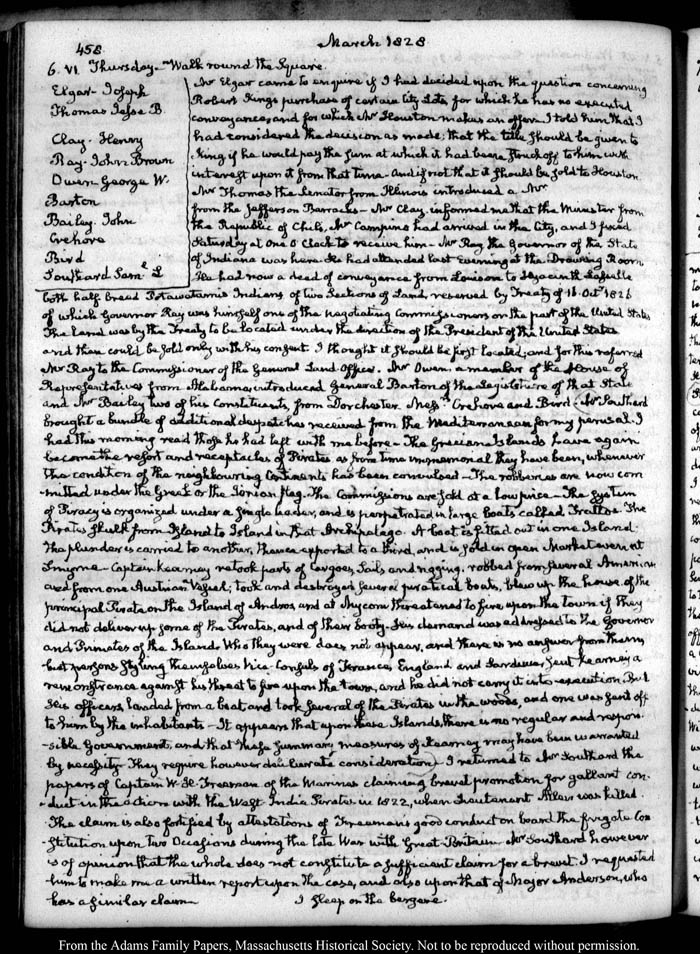 458
March 1828
6. VI. Thursday. Walk round the Square.
Elgar- Joseph
Thomas Jesse B.
Clay- Henry
Ray- John Brown
Owen George W.
Barton
Bailey. John
Crehore
Bird
Southard Saml. L
Mr Elgar came to enquire if I had decided upon the question concerning
Robert King's purchase of certain City Lots, for which he has no executed
conveyance, and for which Mr Houston makes an offer. I told him that I
had considered the decision as made; that the title should be given to
King if he would pay the sum at which it had been struck off to him with
interest upon it from that time- And if not that it should be sold to Houston.
Mr Thomas the Senator from Illinois introduced a Mr
from the Jefferson Barracks- Mr Clay, informed me that the Minister from
the Republic of Chili, Mr Campino had arrived in the City, and I fixed
Saturday at One O'Clock to receive him- Mr Ray the Governor of the State
of Indiana was here. He had attended last Evening at the Drawing Room.
He had now a deed of conveyance from to Hyacinth Lasselle
both half breed Potawatamis Indians of two Sections of Land, reserved by Treaty of 16 Octr 1826
of which Governor Ray was himself one of the negotiating Commissioners on the part of the United States
The Land was by the Treaty to be located under the direction of the President of the United States
and then could be sold only with his consent. I thought it should be first located; and for this referred
Mr Ray to the Commissioner of the General Land Office. Mr Owen, a member of the House of
Representatives from Alabama, introduced General Barton of the Legislature of that State
and Mr Bailey two of his Constituents, from Dorchester. Messrs Crehore and Bird- Mr Southard
brought a bundle of additional despatches received from the Mediterranean for my perusal. I
had this morning read those he had left with me before- The Grecian Islands have again
become the resort and receptacles of Pirates as from time immemorial they have been, whenever
the condition of the neighbouring Continents has been convulsed- The robberies are now com
mitted under the Greek or the Ionian flag. The Commissions are sold at a low price- The System
of Piracy is organized under a single leader, and is perpetrated in large boats called The
Pirates skulk from Island to Island in that Archipelago. A boat is fitted out in one Island:
the plunder is carried to another, thence exported to a third, and is sold in open Market even at
Smyrna- Captain Kearney retook parts of Cargoes, Sails and rigging, robbed from several American
and from one Austrian Vessel; took and destroyed several piratical boats, blew up the house of the
principal Pirate on the Island of Andros, and at Mycone threatened to fire upon the town if they
did not deliver up some of the Pirates, and of their booty. His demand was addressed to the Governor
and Primates of the Island. Who they were does not appear, and there is no answer from them;
but persons styling themselves Vice-Consuls of France, England and Sardinia, sent Kearney a
remonstrance against his threat to fire upon the town, and he did not carry it into execution. But
his officers, landed from a boat and took several of the Pirates in the woods, and one was sent off
to him by the inhabitants- It appears that upon these Islands, there is no regular and respon
-sible Government, and that these summary measures of Kearney may have been warranted
by necessity- They require however deliberate consideration. I returned to Mr Southard the
papers of Captain W. H. Freeman of the Marines claiming brevet promotion for gallant con
-duct in the actions with the West India Pirates in 1822, when Lieutenant Allen was killed.
The claim is also fortified by attestations of Freeman's good conduct on board the frigate Con
stitution upon two Occasions during the late War with Great Britain. Mr Southard however
is of opinion that the whole does not constitute a sufficient claim for a brevet. I requested
him to make me a written report upon the case, and also upon that of Major Anderson, who
has a similar claim. I sleep on the bergere.
From the Adams Family Papers, Massachusetts Historical Society. Not to be reproduced without permission.